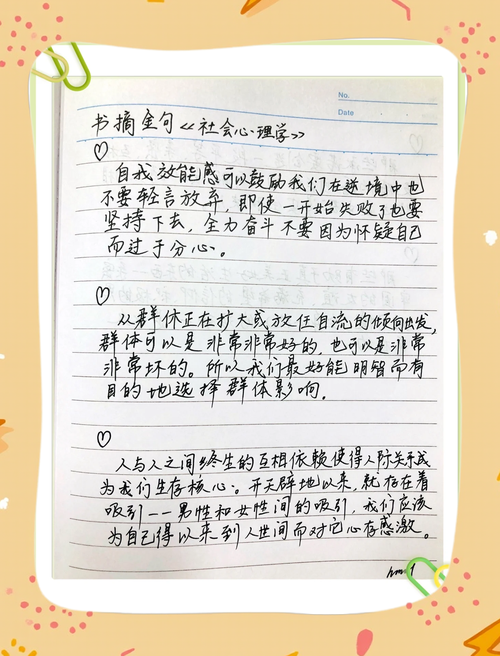 No.
Date
书摘金句《社会心理学》
♡
自我效能感可以鼓励我们在逆境中也
不要轻言放弃,即使一开始失败了也要
坚持下去,全力奋斗不要因为怀疑自己
而过于分心。
♡
从群体正在扩大或放任自流的倾向出发,
群体可以是非常非常好的,也可以是非常
非常坏的。所以我们最好能明智而有
目的地选择群体影响.
♡
人与人之间终生的互相依赖使得人际关系成
为我们生存核心。开天辟地以来,就存在着
吸引——男性和女性间的吸引,我们应该
为自己得以来到人世间而对它心存感激。